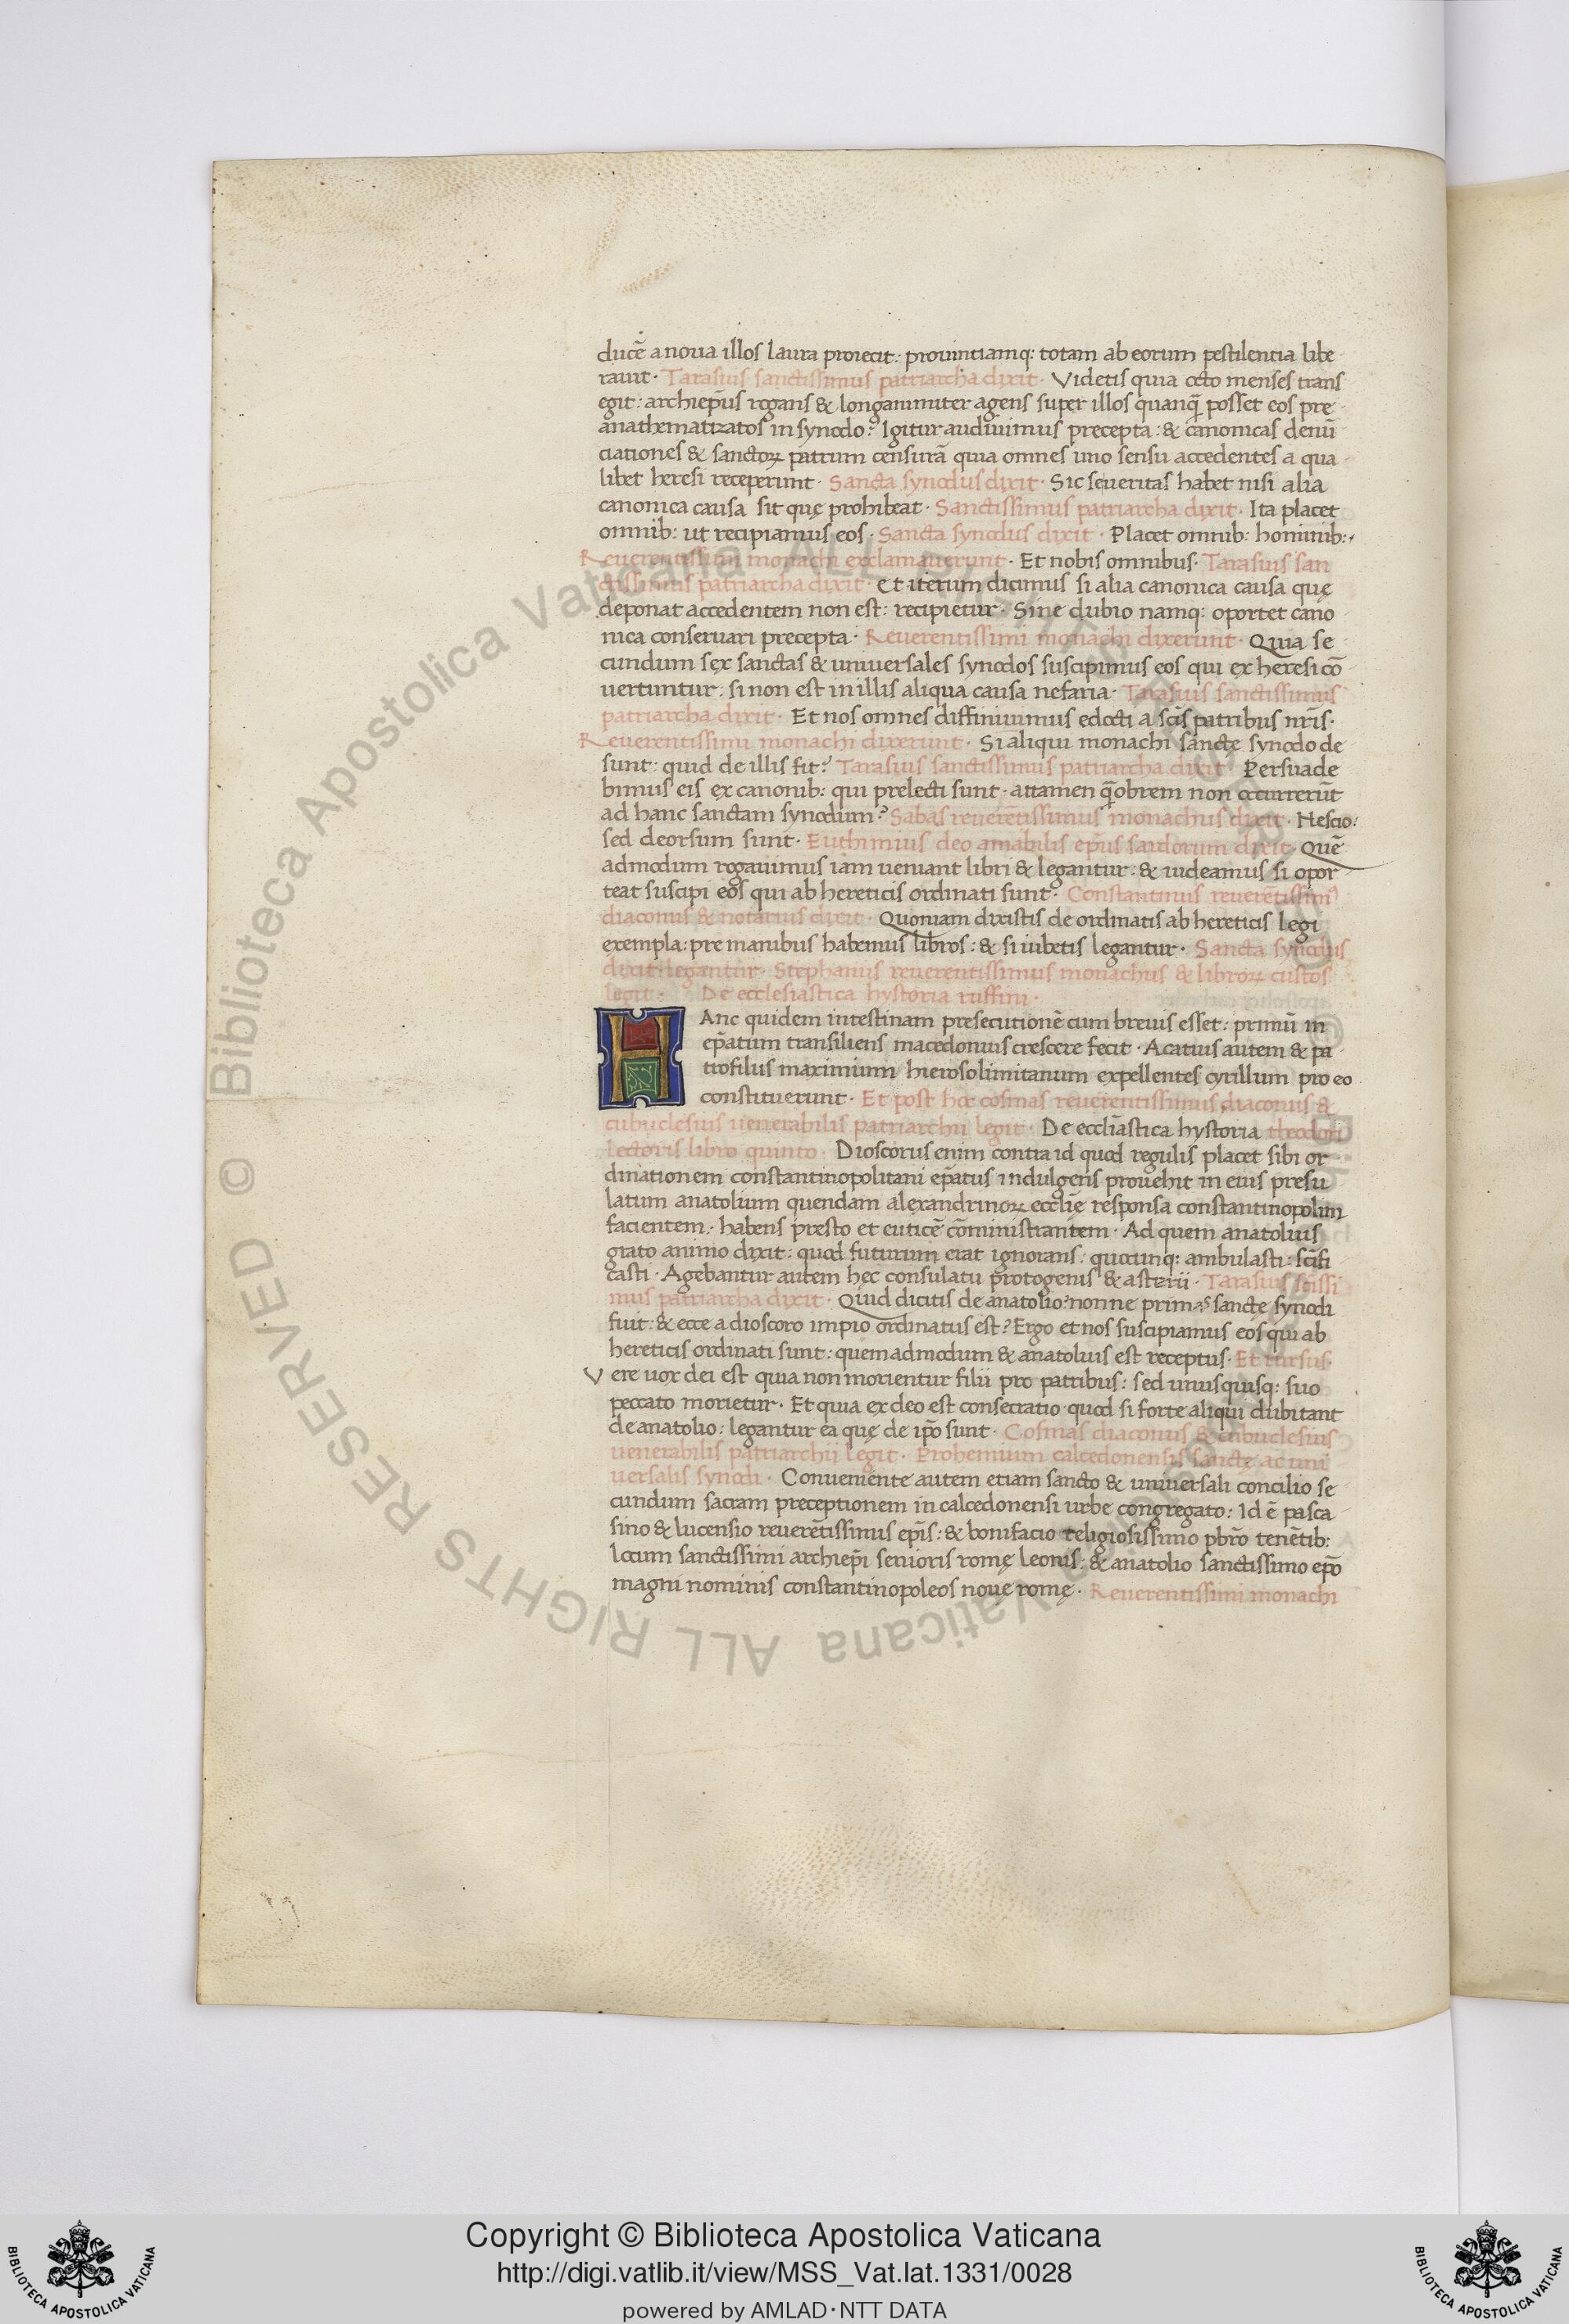 ducē a noua illos laura proiecit: prouintiamq: totam ab eorum pestilentia libe
rauit· Tarasius sanctissimus patriarcha dixit· Videtis quia octo menses trans
egit: archiep̄us rogans & longanimiter agens super illos quanq̄ posset eos pre
anathematizatos in synodo? Igitur audiuimus precepta: & canonicas denū
ciationes & sanctoꝝ patrum censurā quia omnes uno sensu accedentes a qua
libet heresi receperunt· Sancta synodus dixit· Sic se ueritas habet nisi alia
canonica causa sit quę prohibeat· Sanctissimus patriarcha dixit· Ita placet
omnib: ut recipiamus eos· Sancta synodus dixit· Placet omnib: hominib:·
Reuerentissimi monachi exclamauerunt· Et nobis omnibus· Tarasius san
ctissimus patriarcha dixit· Et iterum dicimus si alia canonica causa quę
deponat accedentem non est: recipietur· Sine dubio namq: oportet cano
nica conseruari precepta· Reuerentissimi monachi dixerunt· Quia se
cundum sex sanctas & uniuersales synodos suscipimus eos qui ex heresi cō
uertuntur: si non est in illis aliqua causa nefaria· Tarasius sanctissimus
patriarcha dixit· Et nos omnes diffiniuimus edocti a scīs patribus nr̄is·
Reuerentissimi monachi dixerunt· Si aliqui monachi sancte synodo de
sunt: quid de illis fit? Tarasius sanctissimus patriarcha dixit· Persuade
bimus eis ex canonib: qui prelecti sunt· attamen q̄obrem non occurrerūt
ad hanc sanctam synodum? Sabas reuerētissimus monachus dixit· Nescio:
sed deorsum sunt· Euthimius deo amabilis ep̄us sardorum dixit· Quē
admodum rogauimus iam ueniant libri & legantur: & uideamus si opor
teat suscipi eos qui ab hereticis ordinati sunt· Constantinus reuerētissim9
diaconus & notarius dixit· Quoniam dixistis de ordinatis ab hereticis legi
exempla: pre manibus habemus libros: & si iubetis legantur· Sancta synodus
dixit: legantur· Stephanus reuerentissimus monachus & libroꝝ custos
legit: De ecclesiastica hystoria ruffini·
HAnc quidem intestinam presecutionē cum breuis esset: primū in
ep̄atum transiliens macedonius crescere fecit· Acatius autem & pa
trofilus maximum hierosolimitanum expellentes cyrillum pro eo
constituerunt· Et post hoc cosmas reuerentissimus diaconus &
cubuclesius uenerabilis patriarchii legit· De eccl̄iastica hystoria theodori
lectoris libro quinto· Dioscorus enim contra id quod regulis placet sibi or
dinationem constantinopolitani ep̄atus indulgens prouehit in eius presu
latum anatolium quendam alexandrinoꝝ eccl̄ię responsa constantinopolim
facientem: habens presto et euticē cōministrantem· Ad quem anatolius
grato animo dixit: quod futurum erat ignorans: quocunq: ambulasti: scīfi
casti· Agebantur autem hęc consulatu protogenis & asterii· Tarasius scīssi
mus patriarcha dixit· Quid dicitis de anatolio? nonne primas sancte synodi
fuit: & ecce a dioscoro impio ordinatus est? Ergo et nos suscipiamus eos qui ab
hereticis ordinati sunt: quemadmodum & anatolius est receptus· Et rursus·
Vere uox dei est quia non morientur filii pro patribus: sed unusquisq: suo
peccato morietur· Et quia ex deo est consecratio· quod si forte aliqui dubitant
de anatolio: legantur ea quę de ip̄o sunt· Cosmas diaconus & cubuclesius
uenerabilis patriarchii legit· Prohemium calcedonensis sanctę ac uni
uersalis synodi· Conueniente autem etiam sancto & uniuersali concilio se
cundum sacram preceptionem in calcedonensi urbe congregato: Id ē pasca
sino & lucensio reuerētissimis ep̄is: & bonifacio religiosissimo pbr̄o tenētib:
locum sanctissimi archiep̄i senioris romę leonis: & anatolio sanctissimo ep̄o
magni nominis constantinopoleos nouę romę· Reuerentissimi monachi
© Biblioteca Apostolica Vaticana ALL RIGHTS RESERVED
© Biblioteca Apostolica Vaticana ALL RIGHTS RESERVED
Copyright © Biblioteca Apostolica Vaticana
http://digi.vatlib.it/view/MSS_Vat.lat.1331/0028
powered by AMLAD·NTT DATA
BIBLIOTECA APOSTOLICA VATICANA
BIBLIOTECA APOSTOLICA VATICANA